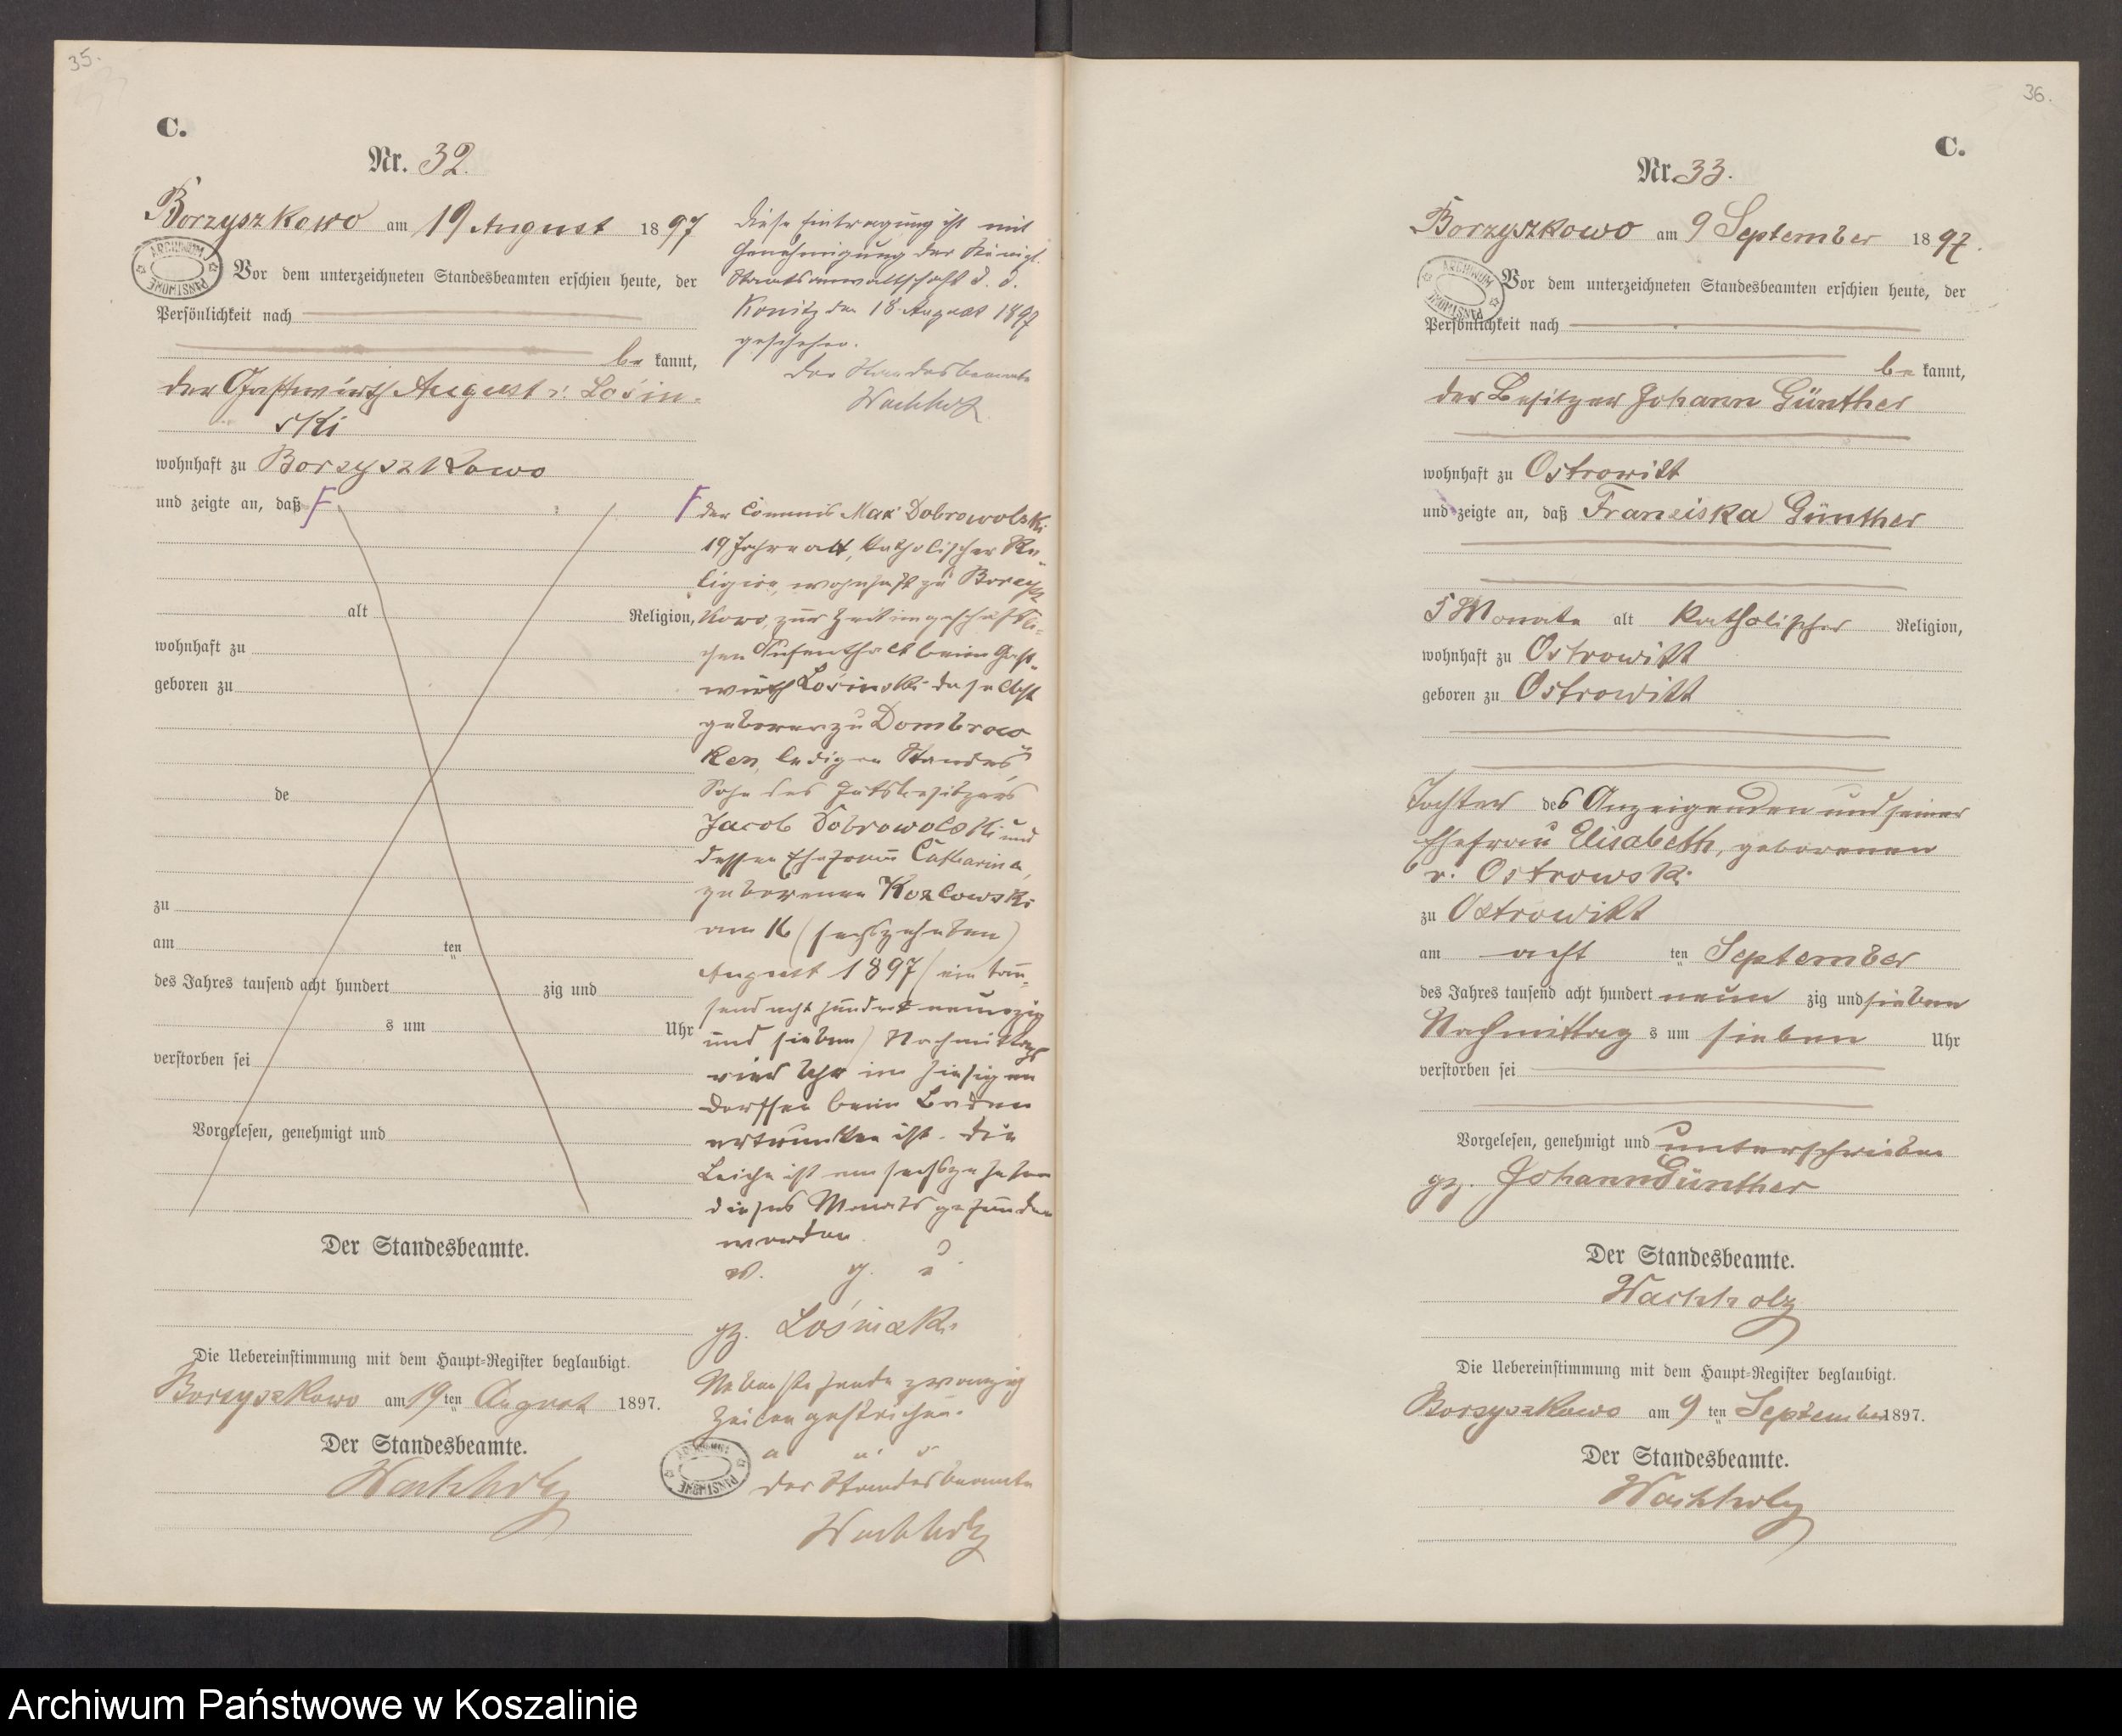 35.
C.
Nr. 32.
Borzyszkowo am 19 August 1897
Vor dem unterzeichneten Standesbeamten erschien heute, der
Persönlichkeit nach
be kannt,
der Gastwirth August v. Losin-
ski
wohnhaft zu Borzyszkowo
und zeigte an, daß F
alt Religion,
wohnhaft zu
geboren zu
de
zu
am ten
des Jahres tausend acht hundert zig und
s um Uhr
verstorben sei
Vorgelesen, genehmigt und
Der Standesbeamte.
Die Uebereinstimmung mit dem Haupt-Register beglaubigt.
Borzyszkowo am 19 ten August 1897.
Der Standesbeamte.
Wachholz
Diese Eintragung ist mit
Genehmigung der Königl.
Staatsanwaltschaft d. d.
Konitz den 18. August 1897
geschehen.
Der Standesbeamte
Wachholz
F der Commis Max Dobrowolski
19 Jahre alt, katholischer Re-
ligion, wohnhaft zu Borzysz
kowo, zur Zeit im geschäftli-
chen Aufenthalt beim Gast-
wirth Losinski daselbst
geboren zu Dombrow
ken, ledigen Standes
Sohn des Gutsbesitzers
Jacob Dobrowolski und
dessen Ehefrau Catharina
geborenen Kozlowski
am 16 (sechszehnten)
August 1897 (ein tau-
send acht hundert neunzig
und sieben) Nachmittags
vier Uhr im hiesigen
Dorfsee beim Baden
ertrunken ist. Die
Leiche ist am sechszehnten
dieses Monats gefunden
worden.
v. g. u.
gz. Losinski
Nebenstehende zwanzig
Zeilen gestrichen.
Der Standesbeamte
Wachholz
ARCHIWUM PAŃSTWOWE
36.
C.
Nr. 33.
Borzyszkowo am 9 September 1897.
Vor dem unterzeichneten Standesbeamten erschien heute, der
Persönlichkeit nach
be kannt,
der Besitzer Johann Günther
wohnhaft zu Ostrowitt
und zeigte an, daß Franziska Günther
5 Monate alt katholischer Religion,
wohnhaft zu Ostrowitt
geboren zu Ostrowitt
Tochter des Anzeigenden und seiner
Ehefrau Elisabeth, geborenen
v. Ostrowski
zu Ostrowitt
am acht ten September
des Jahres tausend acht hundert neun zig und sieben
Nachmittag s um sieben Uhr
verstorben sei
Vorgelesen, genehmigt und unterschrieben
gz. Johann Günther
Der Standesbeamte.
Wachholz
Die Uebereinstimmung mit dem Haupt-Register beglaubigt.
Borzyszkowo am 9 ten September 1897.
Der Standesbeamte.
Wachholz
Archiwum Państwowe w Koszalinie